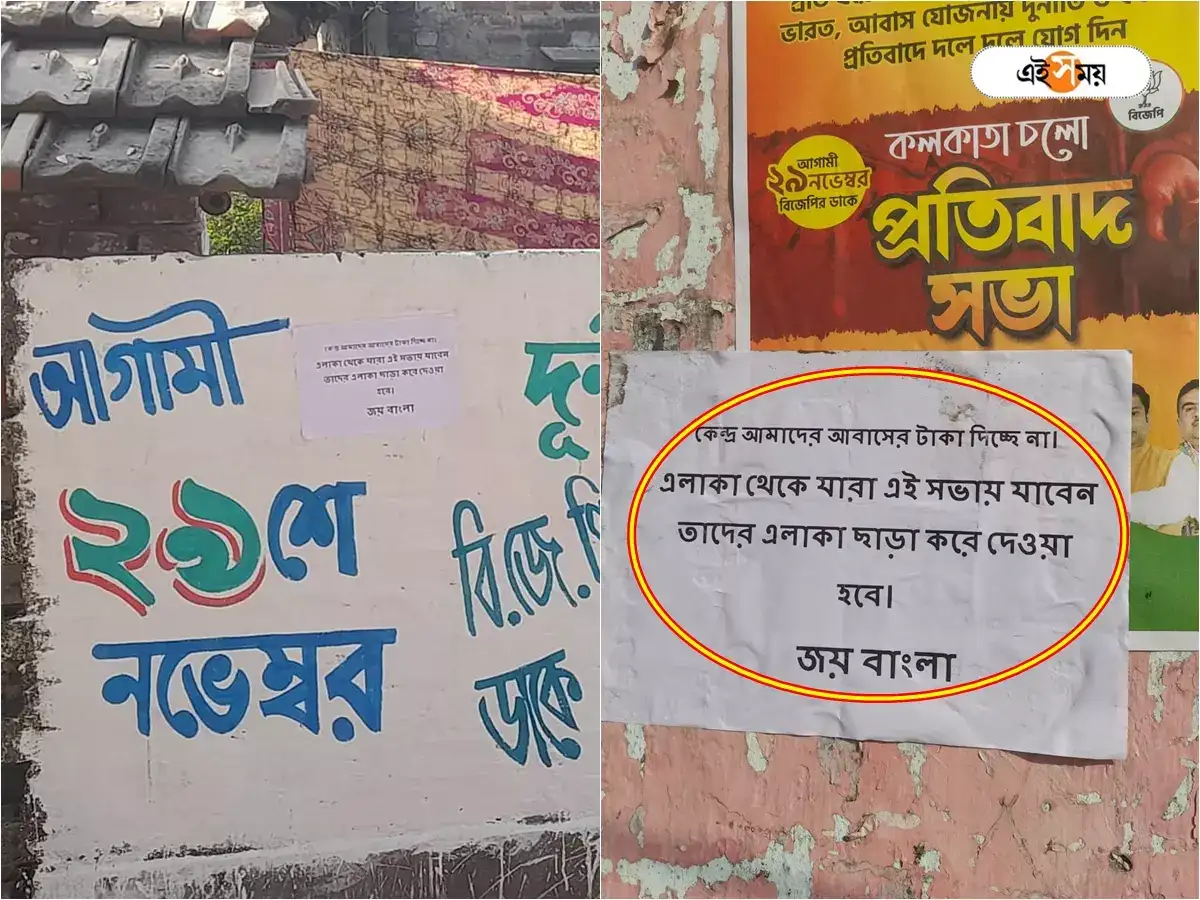 আগামী
২৯শে
নভেম্বর
কেন্দ্র আমাদের আবাসের টাকা দিচ্ছে না।
এলাকা থেকে যারা এই সভায় যাবেন
তাদের এলাকা ছাড়া করে দেওয়া
হবে।
জয় বাংলা
বি.জে.পি
ডাকে
ভারত, আবাস যোজনায় দুর্নীতি ও
প্রতিবাদে দলে দলে যোগ দিন
এই সময়
বিজেপি
কলকাতা চলো
আগামী
২৯ নভেম্বর
বিজেপির ডাকে
প্রতিবাদ
সভা
কেন্দ্র আমাদের আবাসের টাকা দিচ্ছে না।
এলাকা থেকে যারা এই সভায় যাবেন
তাদের এলাকা ছাড়া করে দেওয়া
হবে।
জয় বাংলা